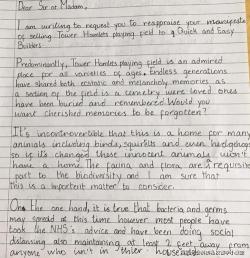 Dear Sir or Madam,
I am writing to request you to reappraise your
of selling Tower Hamlets playing field to a Quick and Easy
Builders.
Predominantly, Tower Hamlets playing field is an admired
place for all varieties of ages. Endless generations
have shared both ecstatic and melancholy memories as
a section of the field is a cemetry were loved ones
have been buried and remembered. Would you
want cherished memories to be forgotten?
It's incontrovertible that this is a home for many
animals including birds, squirrels and even hedgehogs
so if it's changed these innocent animals won't
have a home. The fauna and flora are requisite
part to the biodiversity and I am sure that
this is a important matter to consider.
On the one hand, it is true that bacteria and germs
may spread at this time however most people have
took the NHS's advice and have been doing social
distansing also maintaining at least 2 feet away from
anyone who isn't in their household